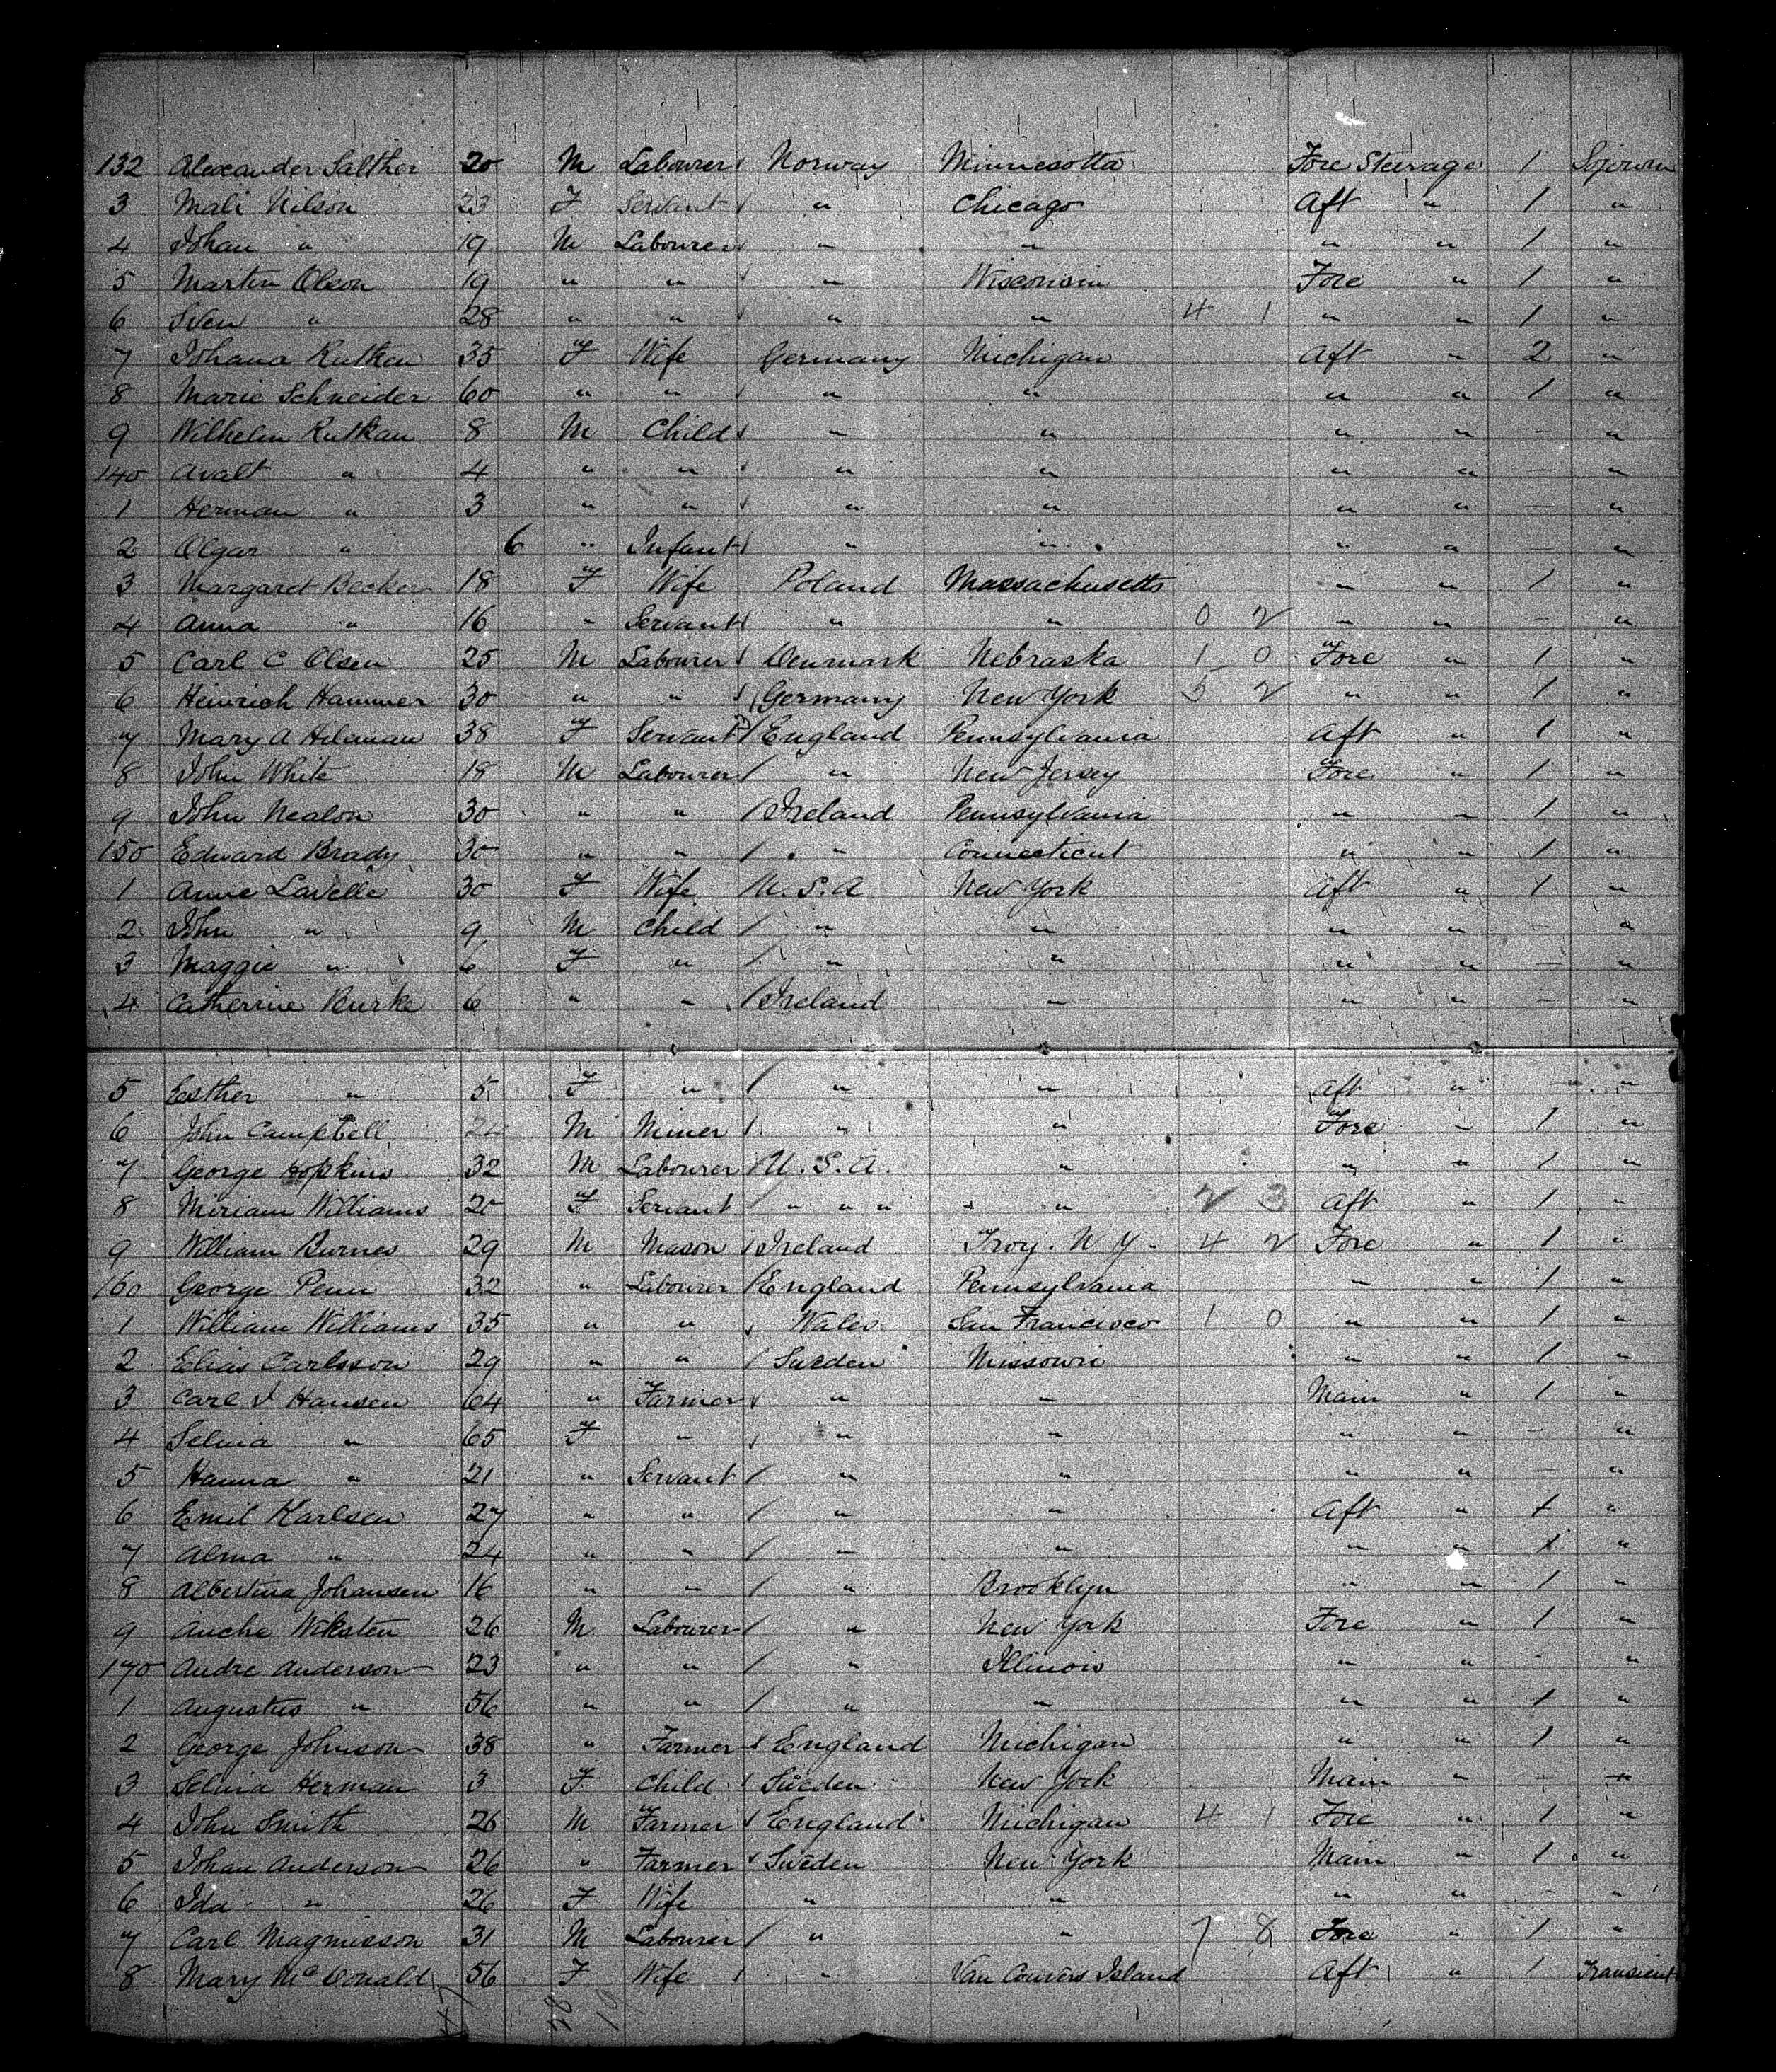 132 Alexander Salther 20 M Labourer Norway Minnesotta Fore Steerage 1 Sojourn
3 Mali Nilson 23 F Servant " Chicago Aft " 1 "
4 Johan " 19 M Labourer " " " " 1 "
5 Martin Olson 19 " " " Wisconsin Fore " 1 "
6 Sven " 28 " " " " 4 1 " " 1 "
7 Johana Rutken 35 F Wife Germany Michigan Aft " 2 "
8 Marie Schneider 60 " " " " " " 1 "
9 Wilhelm Rutkan 8 M Child " " " " - "
140 Avalt " 4 " " " " " " - "
1 Herman " 3 " " " " " " - "
2 Olgar " 6 " Infant " " " " - "
3 Margaret Becker 18 F Wife Poland Massachusetts " " 1 "
4 Anna " 16 " Servant " " 0 2 " " - "
5 Carl C Olsen 25 M Labourer Denmark Nebraska 1 0 Fore " 1 "
6 Heinrich Hammer 30 " " Germany New York 5 2 " " 1 "
7 Mary A 38 F Servant England Pennsylvania Aft " 1 "
8 John White 18 M Labourer " New Jersey Fore " 1 "
9 John Nealon 30 " " Ireland Pennsylvania " " 1 "
150 Edward Brady 30 " " " Connecticut " " 1 "
1 Anne Lavelle 30 F Wife U.S.A New York Aft " 1 "
2 John " 9 M Child " " " " - "
3 Maggie " 6 F " " " " " - "
4 Catherine Burke 6 " " Ireland " " " - "
5 Easther " 5 F " " " Aft " " "
6 John Campbell M Miner " " Fore " 1 "
7 George Hopkins 32 M Labourer U.S.A. " " " 1 "
8 Miriam Williams 20 F Servant " " " " 2 3 Aft " 1 "
9 William Burnes 29 M Mason Ireland Troy. N Y- 4 2 Fore " 1 "
160 George Penn 32 " Labourer England Pennsylvania " " 1 "
1 William Williams 35 " " Wales San Francisco 1 0 " " 1 "
2 Elias Carlsson 29 " " Sweden Missouri " " 1 "
3 Carl J Hansen 64 " Farmer " " Main " 1 "
4 Selma " 65 F " " " " " - "
5 Hanna " 21 " Servant " " " " - "
6 Emil Karlsen 27 " " " " Aft " 1 "
7 Alma " 24 " " " " " " 1 "
8 Albertina Johansen 16 " " " Brooklyn " " 1 "
9 Auche Wiksten 26 M Labourer " New York Fore " 1 "
170 Andre Anderson 23 " " " Illinois " " - "
1 Augustus " 56 " " " " " " 1 "
2 George Johnson 38 " Farmer England Michigan " " 1 "
3 Selma Herman 3 F Child Sweden New York Main " - "
4 John Smith 26 M Farmer England Michigan 4 1 Fore " 1 "
5 Johan Anderson 26 " Farmer Sweden New York Main " 1 "
6 Ida " 26 F Wife " " " " - "
7 Carl Magnusson 31 M Labourer " " 7 8 Fore " 1 "
8 Mary McDonald 56 F Wife " Van Couvers Island Aft " 1 Transient
47 28 19